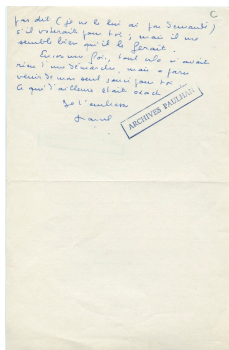 C
pas dit (je ne le lui ai pas demandé)
s'il voterait pour toi ; mais il me
semble bien qu'il le ferait.
Encore une fois, tout cela n'avait
rien d'une démarche, mais a paru
venir de mon seul souci pour toi
Ce qui d'ailleurs était exact
Je t'embrasse
ARCHIVES PAULHAN